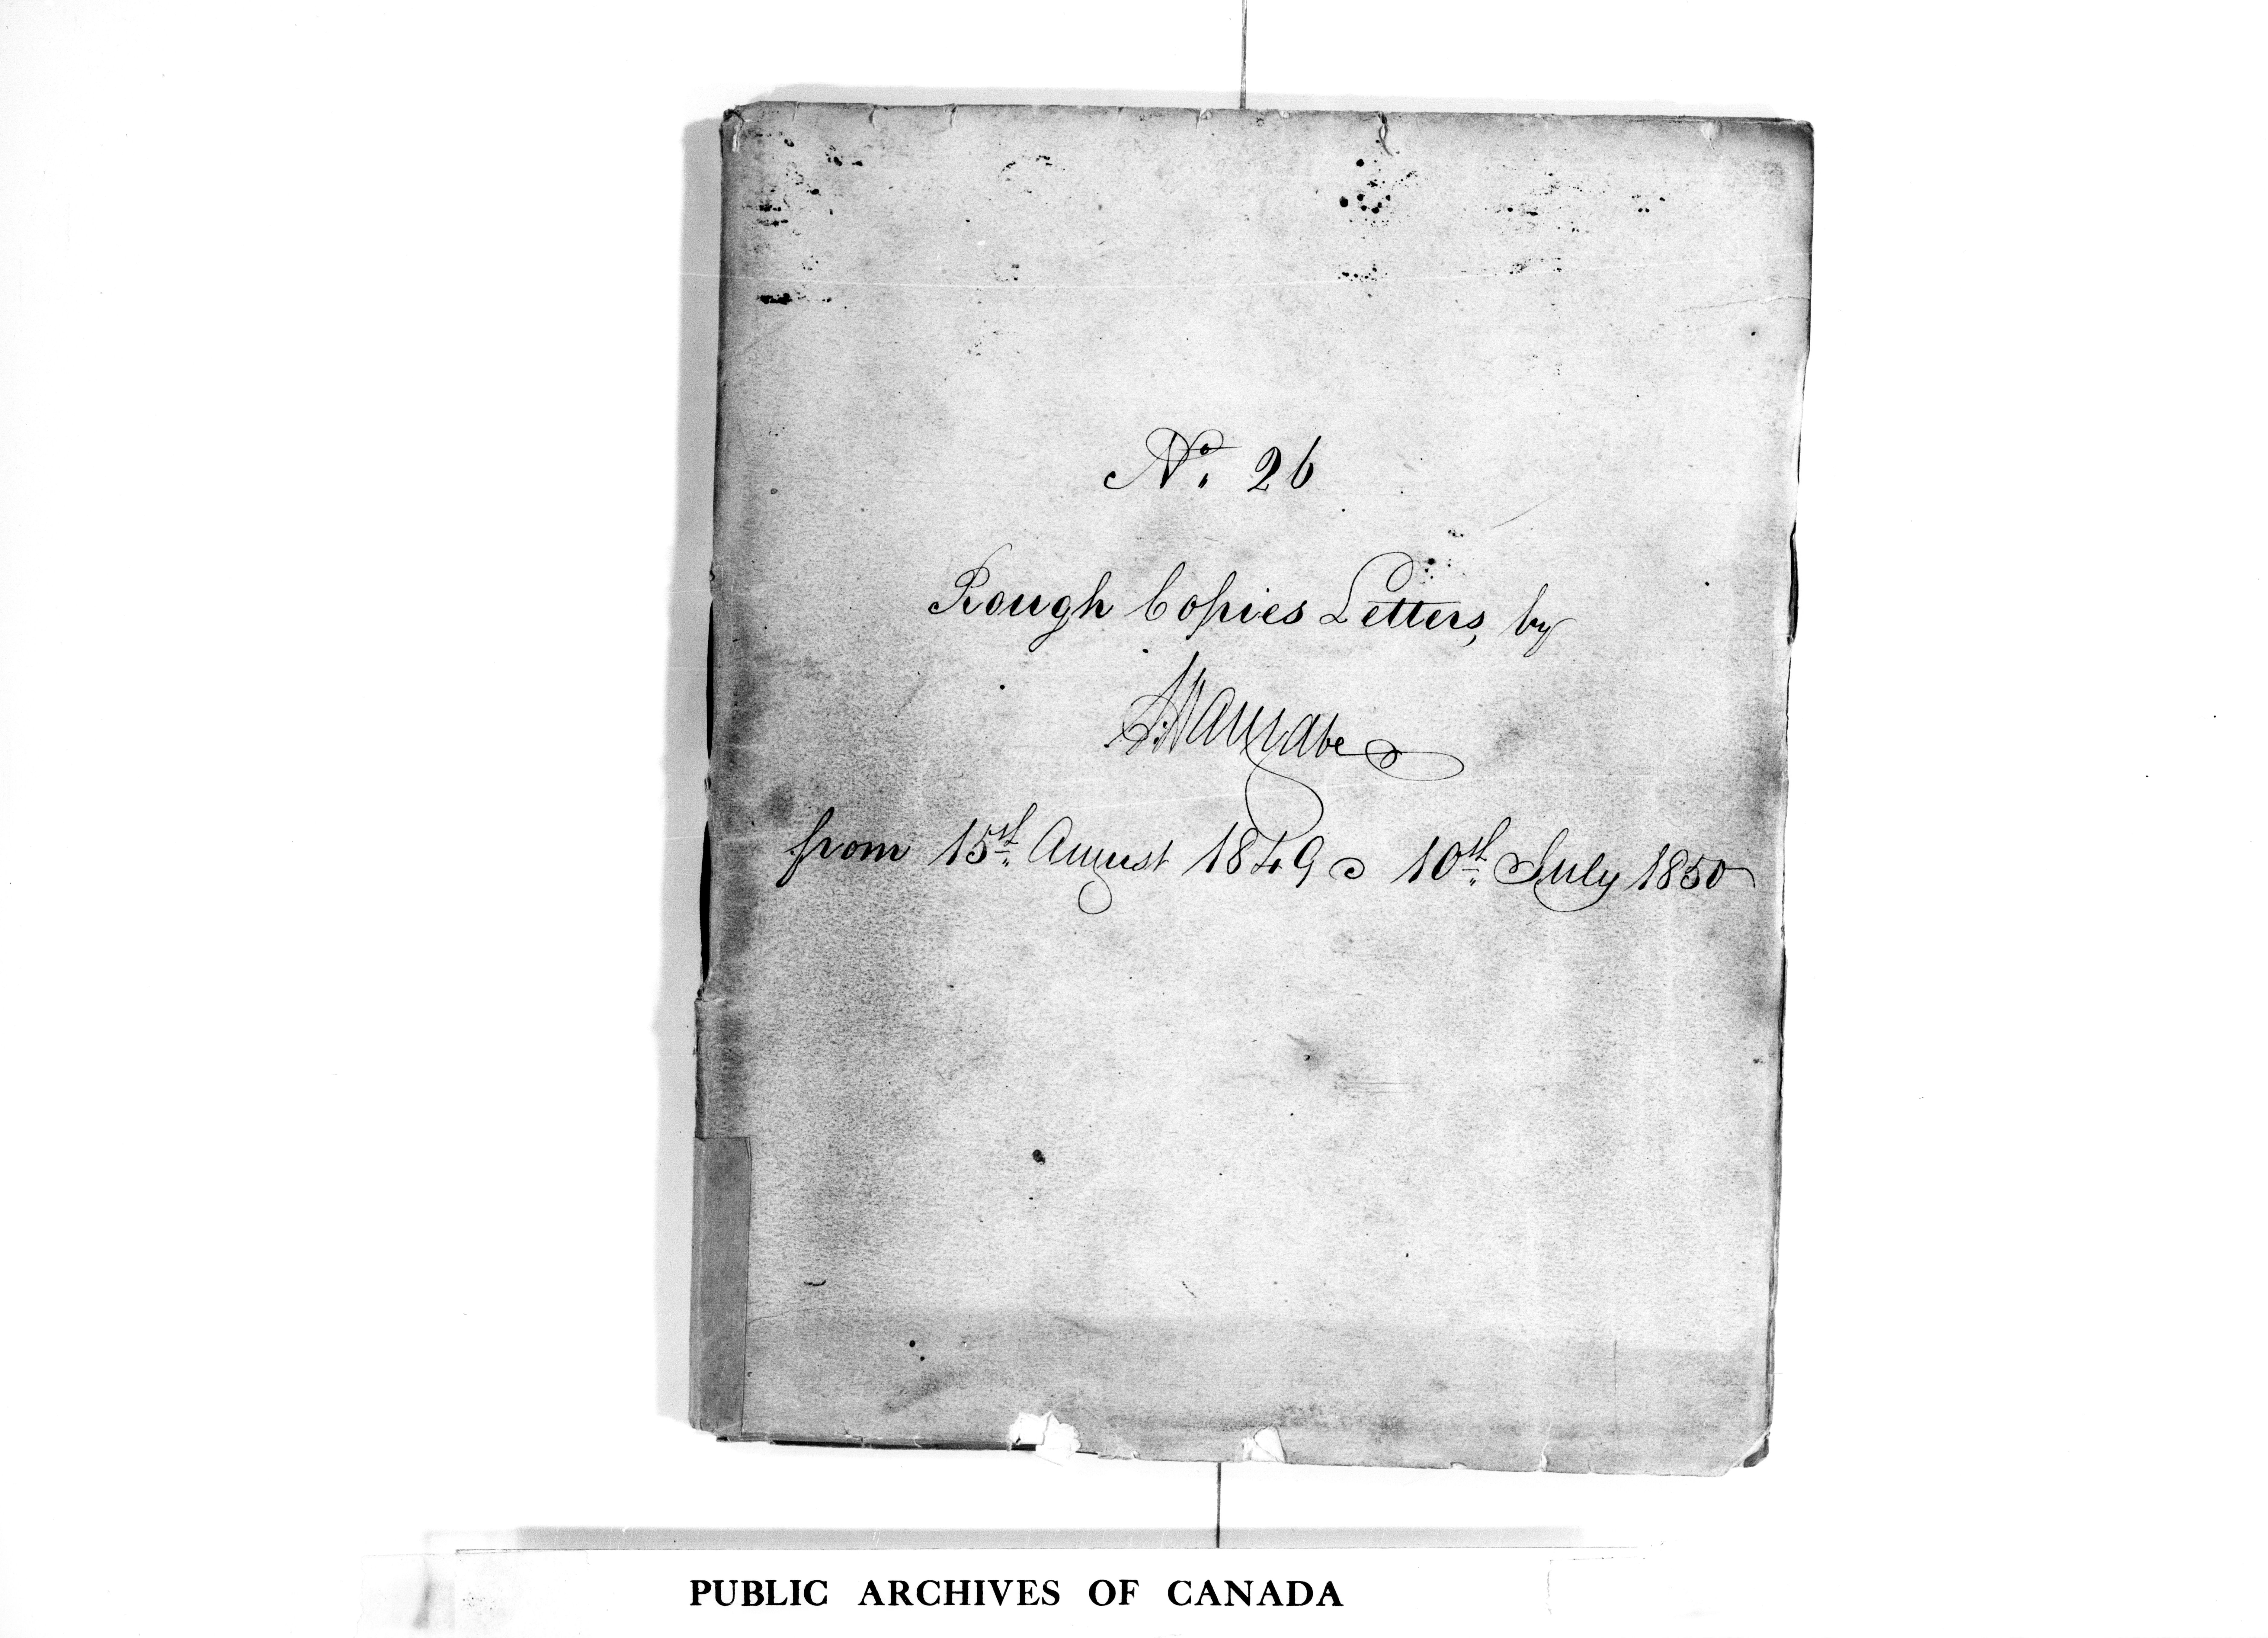 No. 26
Rough Copies Letters, by
from 15th August 1849 10th July 1850
PUBLIC ARCHIVES OF CANADA